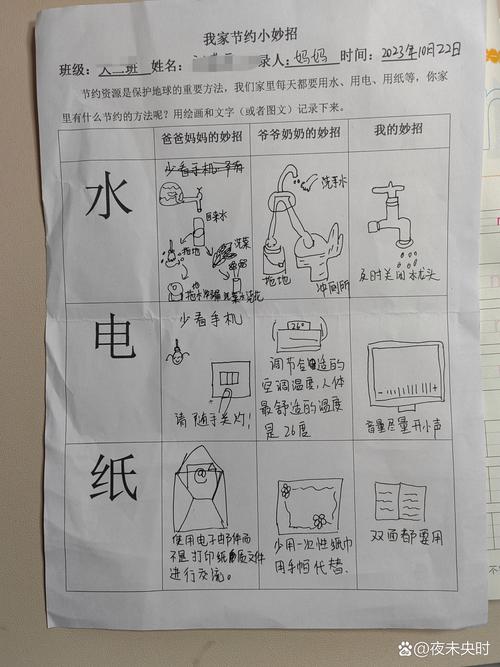 我家节约小妙招
班级: 大二班 姓名: 录人: 妈妈 时间: 2023年10月22日
节约资源是保护地球的重要方法，我们家里每天都要用水、用电、用纸等，你家
里有什么节约的方法呢？用绘画和文字（或者图文）记录下来。
爸爸妈妈的妙招 爷爷奶奶的妙招 我的妙招
水
少看手机
自来水
洗菜
拖地
洗手水
拖地
冲厕所
及时关闭水龙头
电
少看手机
请随手关灯!
26°
调节合适的
空调温度,人体
最舒适的温度
是26度
音量尽量开小声
纸
@
使用电子邮件而
不是打印纸质文件
进行交流。
少用一次性纸巾
用手帕代替.
双面都要用
@夜未央时